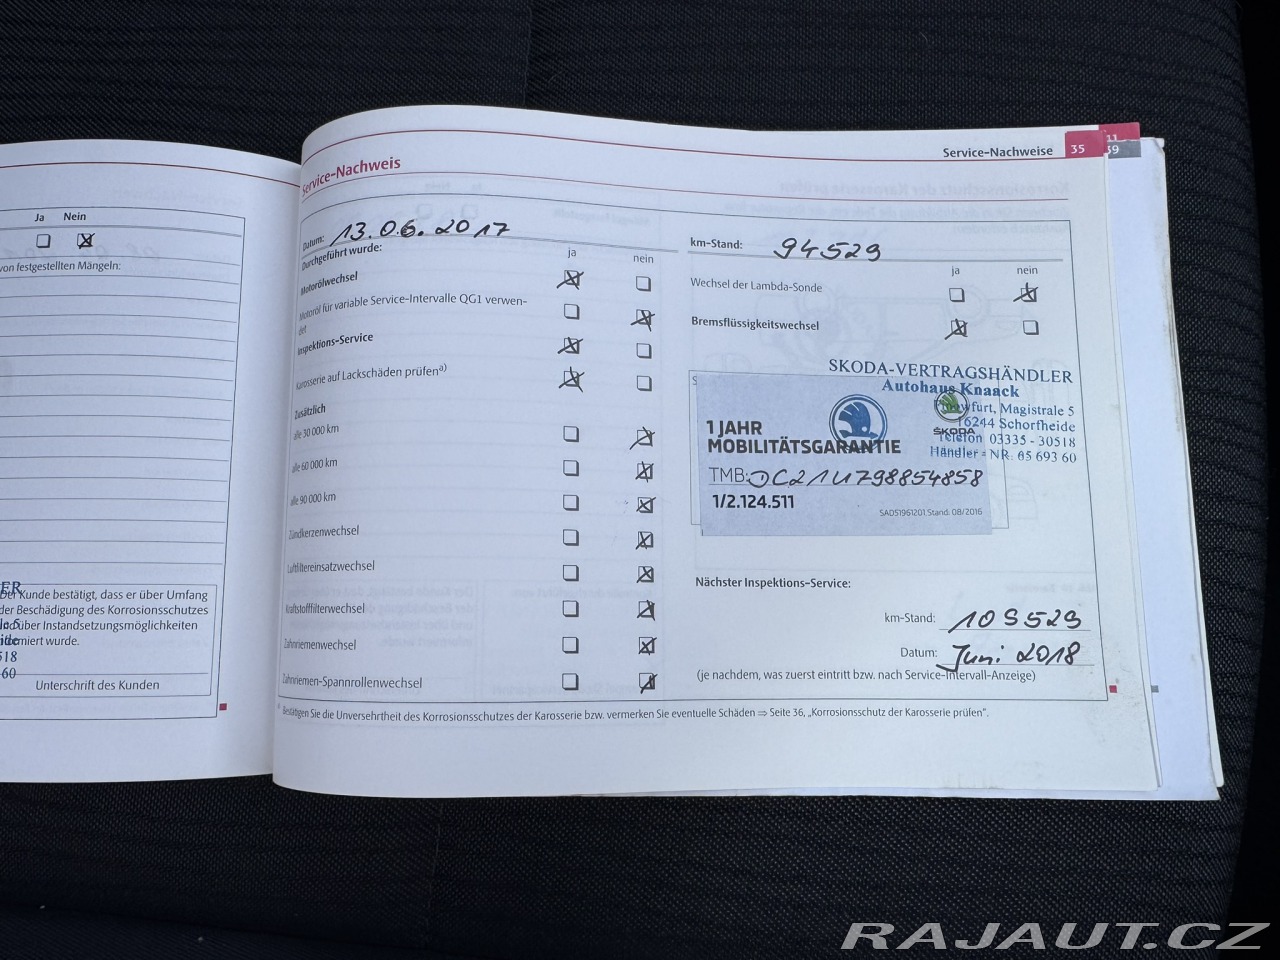 Ja Nein
von festgestellten Mängeln:
Der Kunde bestätigt, dass er über Umfang
der Beschädigung des Korrosionsschutzes
und über Instandsetzungsmöglichkeiten
informiert wurde.
518
60
Unterschrift des Kunden
Service-Nachweise 35
11
39
Service-Nachweis
Datum: 13.06.2017
Durchgeführt wurde:
ja nein
Motorölwechsel
Motoröl für variable Service-Intervalle QG1 verwen-
det
Inspektions-Service
Karosserie auf Lackschäden prüfen a)
Zusätzlich
alle 30 000 km
alle 60 000 km
alle 90 000 km
Zündkerzenwechsel
Luftfiltereinsatzwechsel
Kraftstofffilterwechsel
Zahnriemenwechsel
Zahnriemen-Spannrollenwechsel
km-Stand: 94529
ja nein
Wechsel der Lambda-Sonde
Bremsflüssigkeitswechsel
SKODA-VERTRAGSHÄNDLER
Autohaus Knaack
Magistrale 5
16244 Schorfheide
ŠKODA
Telefon 03335 - 30518
Händler - NR. 05 693 60
1 JAHR
MOBILITÄTSGARANTIE
TMB: DC21U798854858
1/2.124.511
SAD51961201, Stand: 08/2016
Nächster Inspektions-Service:
km-Stand: 109529
Datum: Juni 2018
(je nachdem, was zuerst eintritt bzw. nach Service-Intervall-Anzeige)
Bestätigen Sie die Unversehrtheit des Korrosionsschutzes der Karosserie bzw. vermerken Sie eventuelle Schäden ⇒ Seite 36, „Korrosionsschutz der Karosserie prüfen“.
RAJAUT.CZ